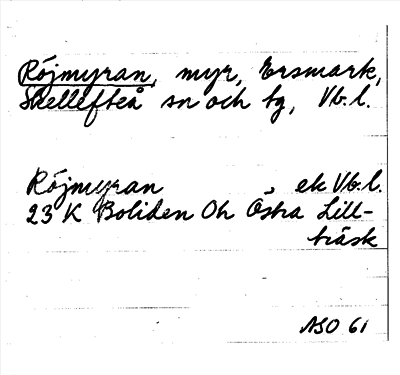 Röjmyran, myr, Ersmark,
Skellefteå sn och tg, Vb. l.
Röjmyran, ek Vb. l.
23 K Boliden Oh Östra Lill-
träsk
ASO 61